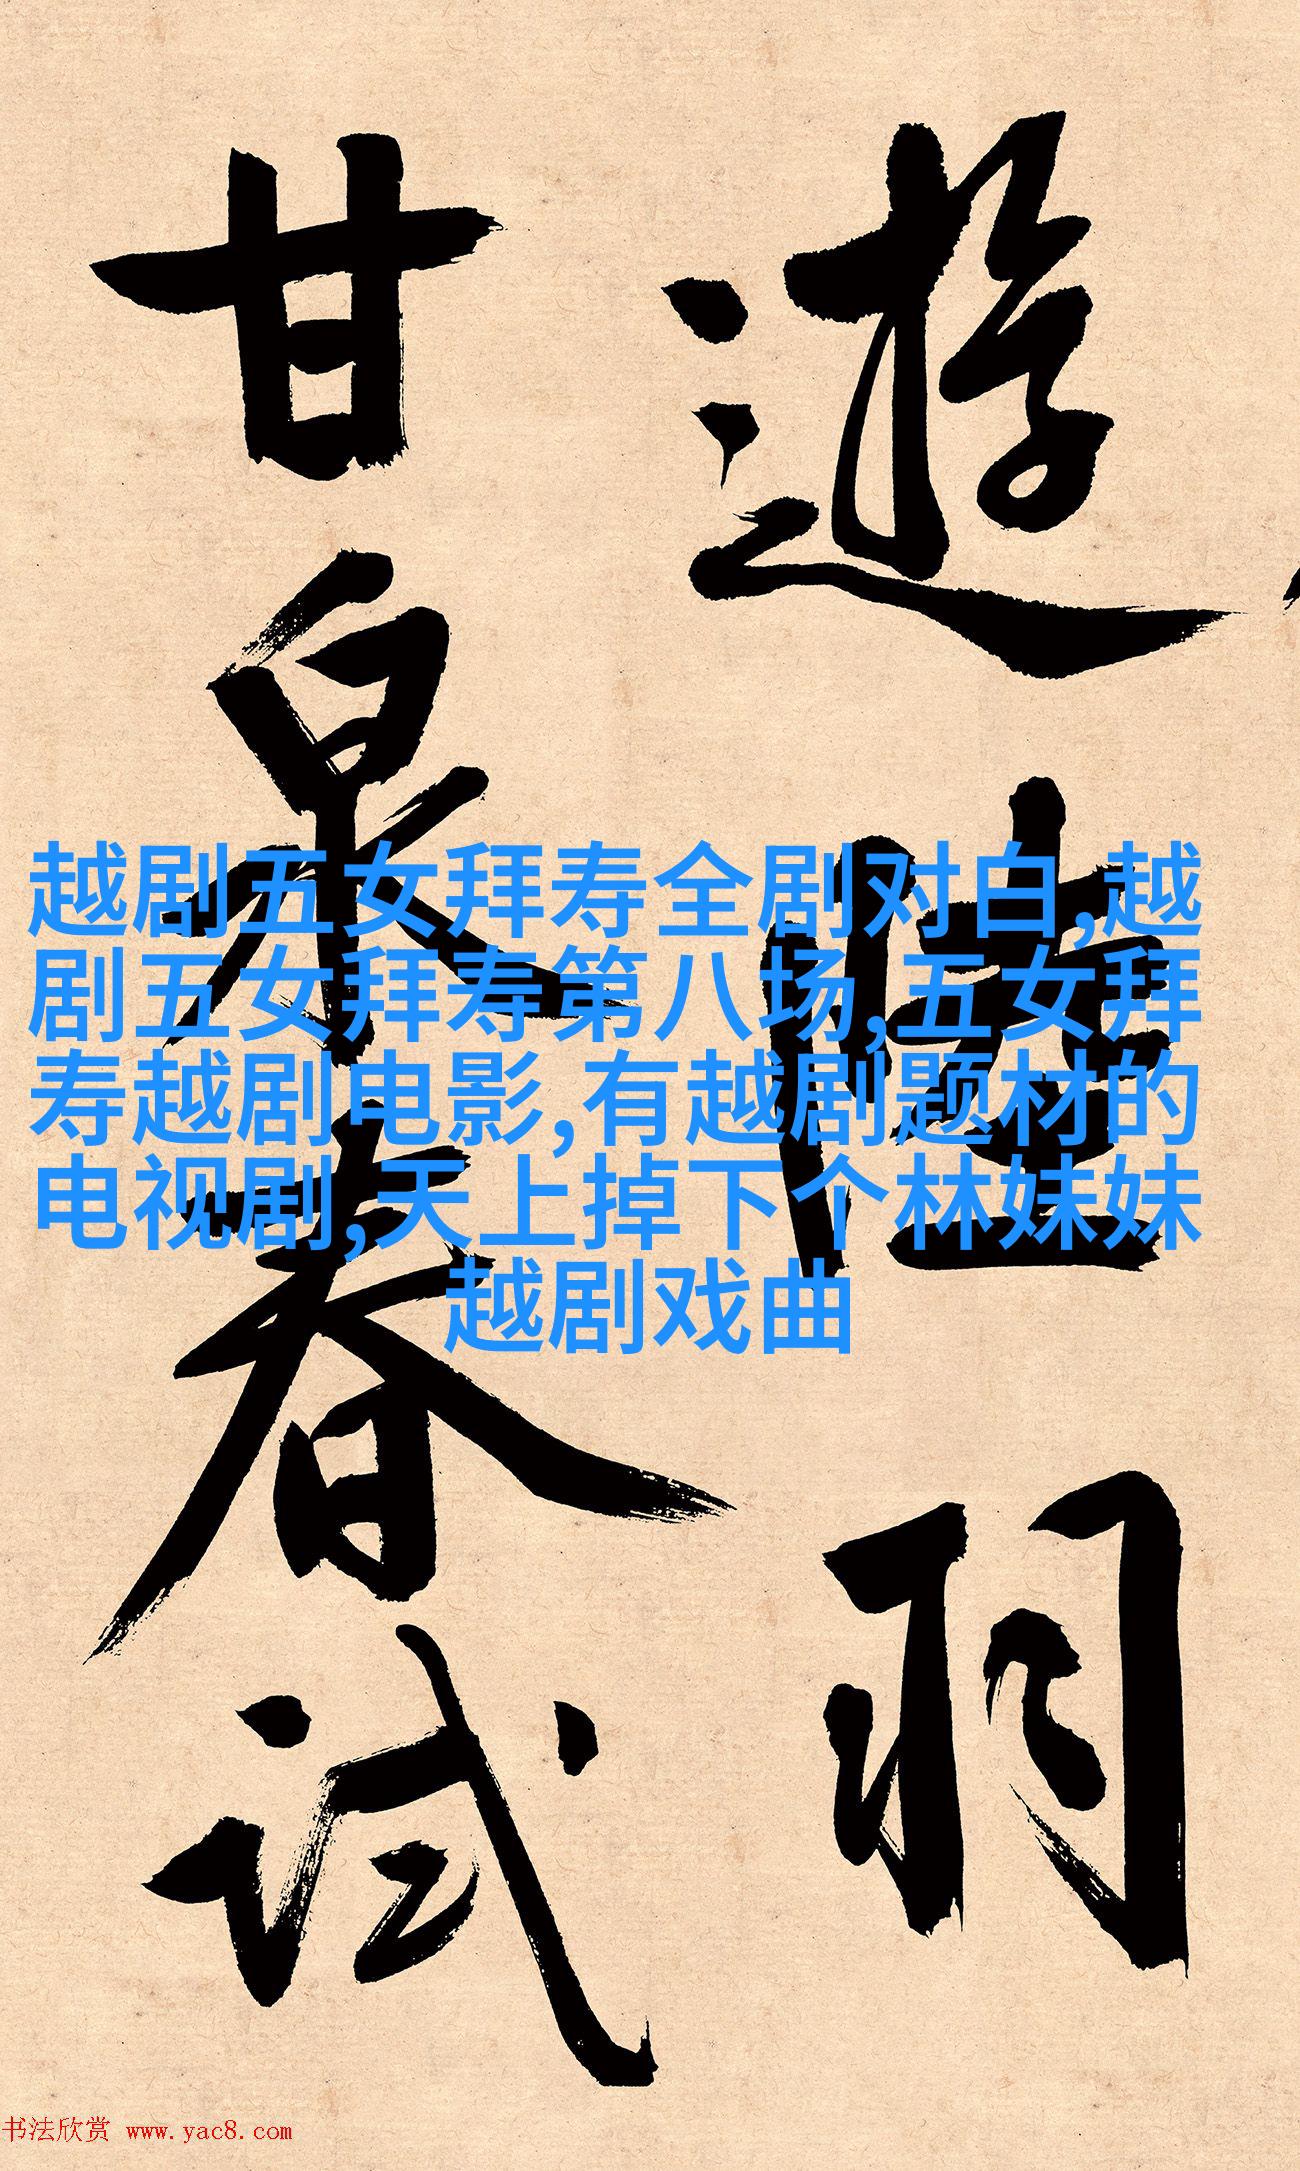 遊陸羽
甘泉春試
越剧五女拜寿全剧对白,越
剧五女拜寿第八场,五女拜
寿越剧电影,有越剧题材的
电视剧,天上掉下个林妹妹
越剧戏曲
书法欣赏 www.yac8.com